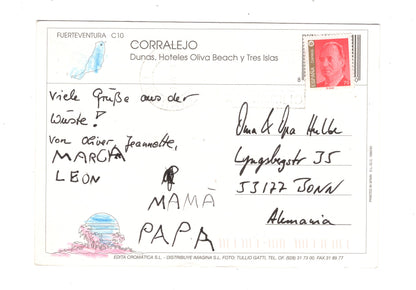 FUERTEVENTURA C10
CORRALEJO
Dunas, Hoteles Oliva Beach y Tres Islas
ESPAÑA
Viele Grüße aus der
Wüste!
von Oliver, Jeannette,
MARCIA
LEON
MAMÀ
PAPA
Oma & Opa Hulbe
Lyngsbergstr 35
53177 BONN
Alemania
EDITA CROMATICA S.L. - DISTRIBUYE IMAGINA S.L. FOTO: TULLIO GATTI, TEL. OF. (928) 31 73 00. FAX 31 89 77